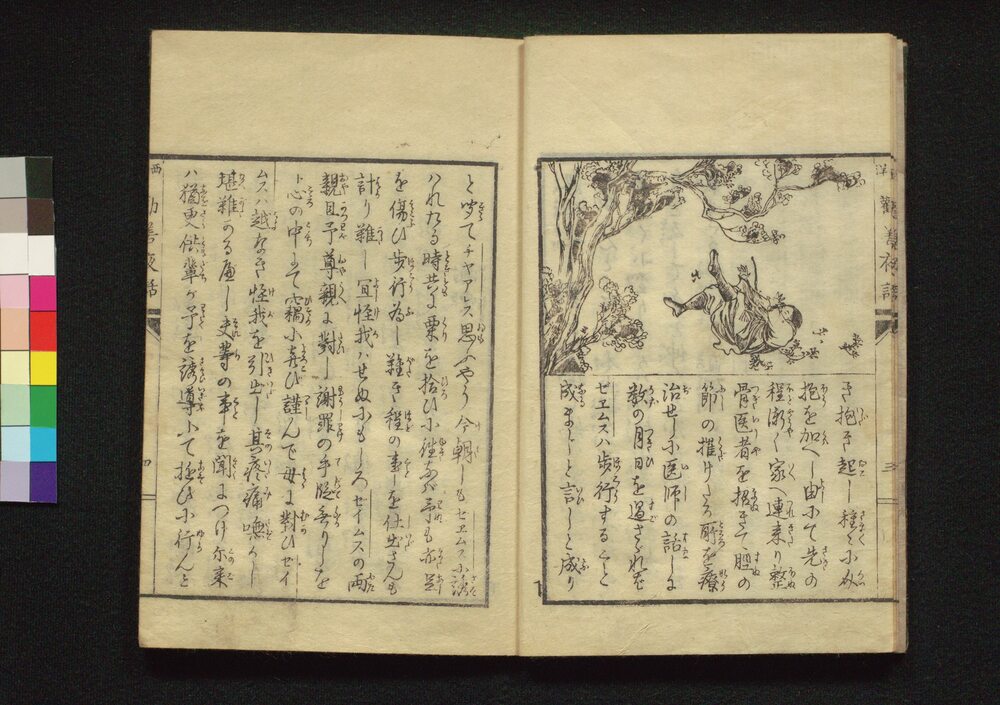 き抱き起し種々介
抱を加へし由にて先の
程漸く家へ連来り整
骨医者を招きて脛の
節の摧けたる所を療
治せしに医師の話しに
数の月日を過さゞれば
ゼエムスハ歩行する〻こと
成まじと言しと成り
と聞てチヤアレス思ふやう今朝しもセエムスに誘
ハれたる時共に栗を拾ひに往なバ予も亦足
を傷ひ歩行為し難き程の事を仕出さんも
計り難し宜怪我ハせぬにもしろセイムスの両
親且予尊親に對し謝罪の手段無りしを
ト心の中にて窃に喜び謹んで母に對ひセイ
ムスハ越なき怪我を引出し其疼痛嘸かし
堪難かる可し夫等の事を聞につけ尓来
ハ猶更儕輩が予を誘導にて遊びに行んと
西 勧善夜話
四
勧善夜話
三